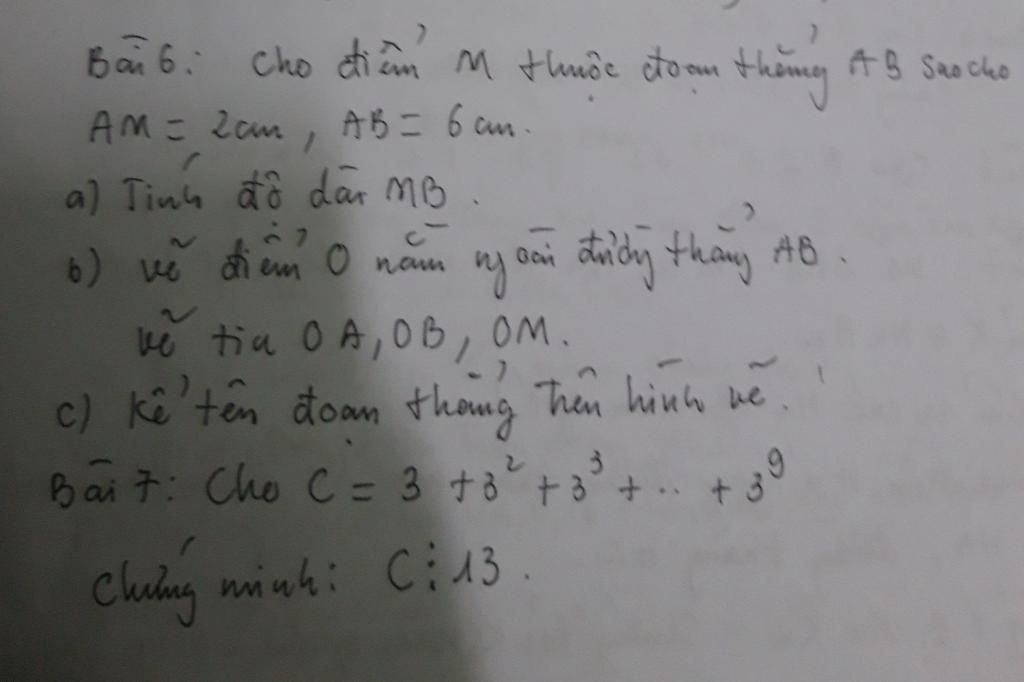 Bài 6: Cho điểm M thuộc đoạn thẳng AB sao cho
AM = 2cm, AB = 6 cm.
a) Tính độ dài MB.
b) vẽ điểm O nằm ngoài đường thẳng AB.
vẽ tia OA, OB, OM.
c) Kể tên đoạn thẳng trên hình vẽ.
Bài 7: Cho C = 3 + 3² + 3³ + .. + 3⁹
Chứng minh: C ⋮ 13.